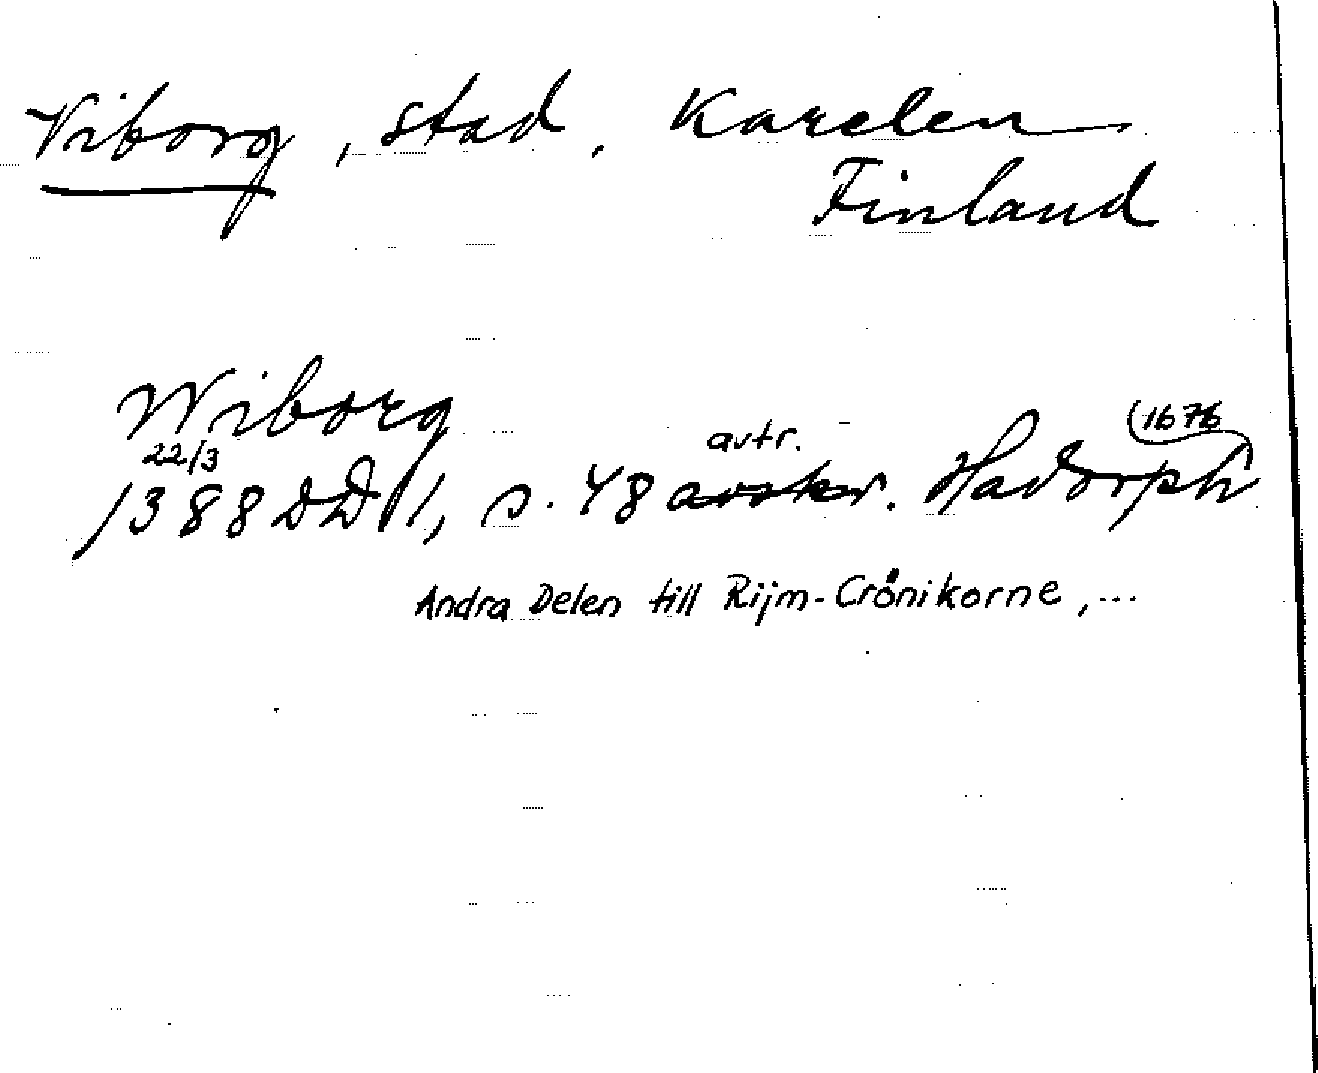 Viborg, stad, Karelen
Finland
Wiborg
22/3 avtr. (1676)
1388 DD 1, s. 48 avskr. Hadorph
Andra Delen till Rijm-Crönikorne, ...